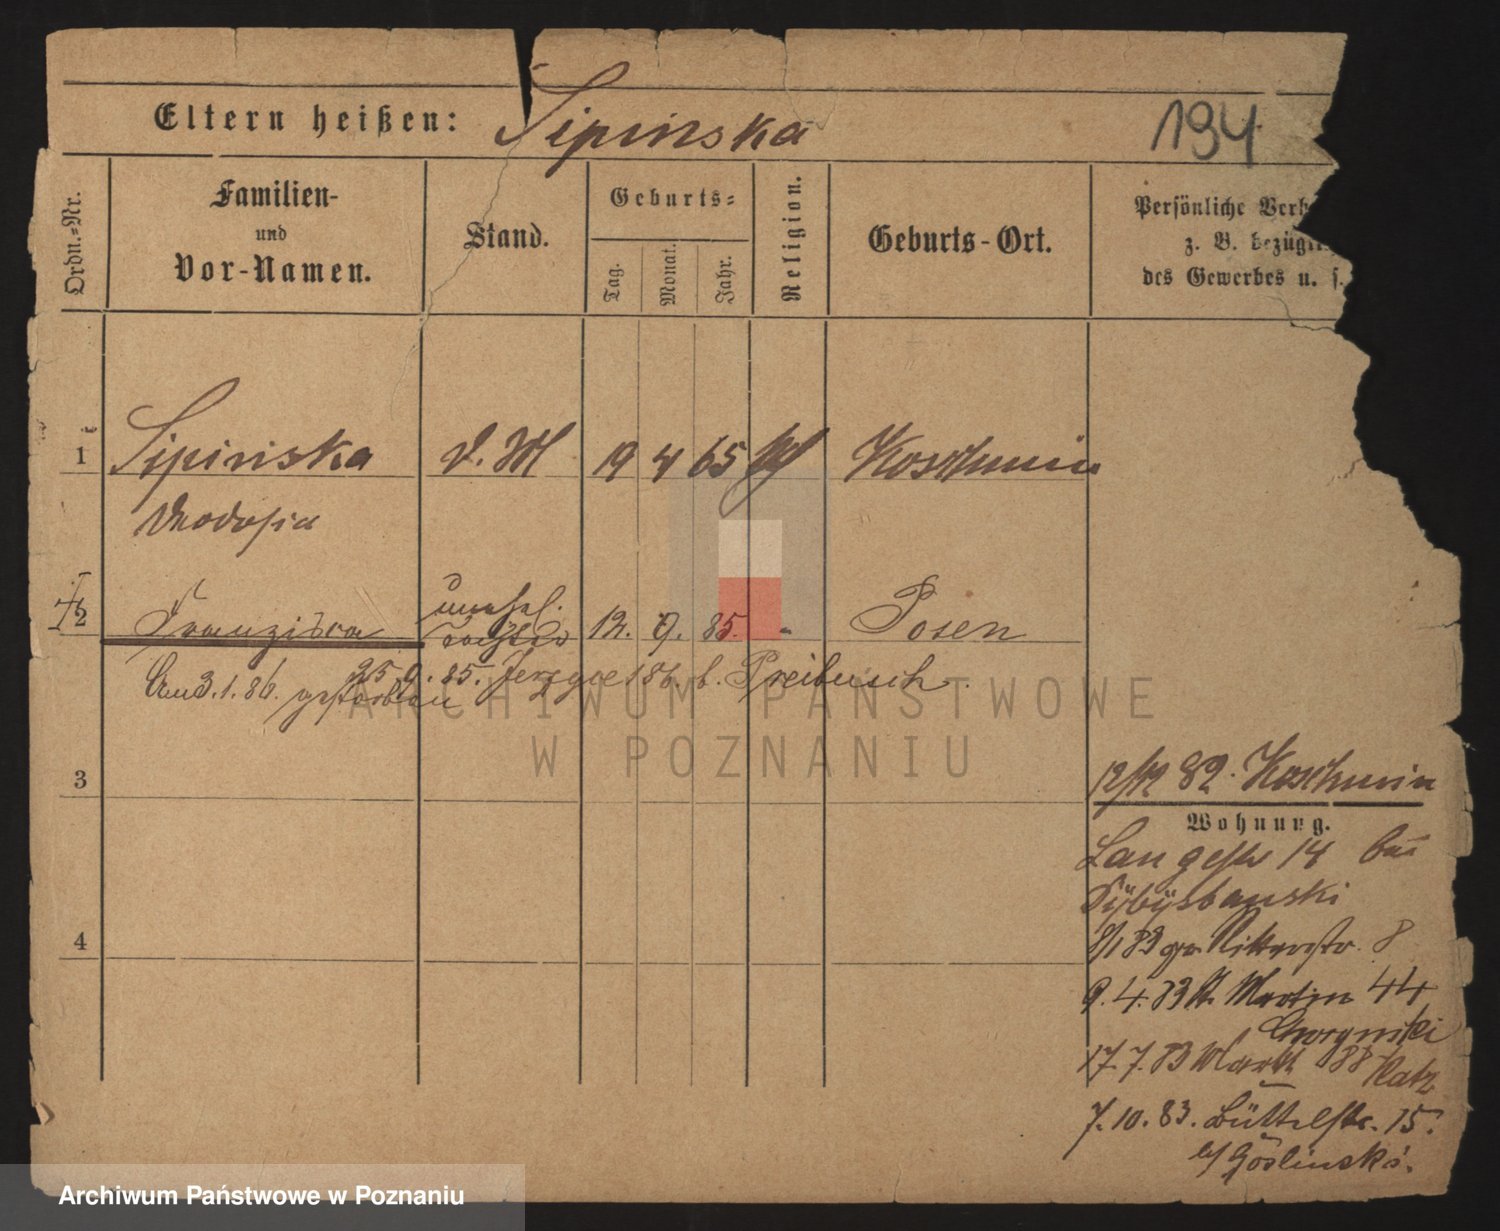 Eltern heißen: Sipinska
194
Ordn.-Nr.
Familien-
und
Vor-Namen.
Stand.
Geburts-
Tag.
Monat.
Jahr.
Religion.
Geburts-Ort.
Persönliche Verh
z. B. bezügl
des Gewerbes u. s.
1 Sipinska d. M 19 4 65 Koschmin
Theodosia
2 Franziska unehel. Tochter 12. 9. 85. - Posen
25.9.85. Jerzyce 186. b. Preibusch.
Am 3.1.86. gestorben
3
12/12 82. Koschmin
Wohnung.
Langestr 14 bei
4
8/1 83 gr. Ritterstr. 8
9.4.83 St. Martin 44
17.7.83 Markt 88 Katz
7.10.83. Büttelstr. 15.
b/ Goslinski.
ARCHIWUM PAŃSTWOWE
W POZNANIU
Archiwum Państwowe w Poznaniu